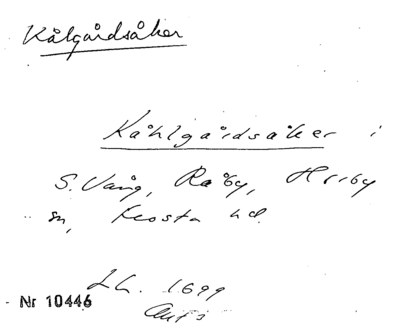 Kålgårdsåker
Kåhlgårdsåker i
S. Vång, Råby, Hörby
sn, Frosta hd.
LA. 1699
Nr 10446